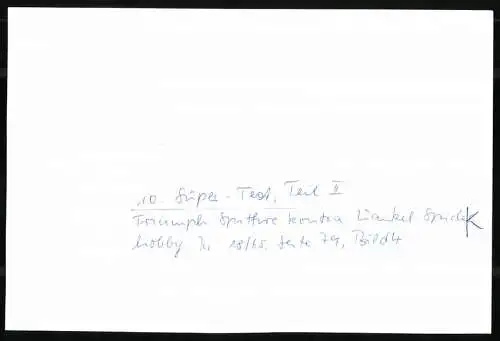 10. Super-Test, Teil II
Triumph Spitfire kontra Wankel Spider
hobby Nr. 18/65, Seite 79, Bild 4
K